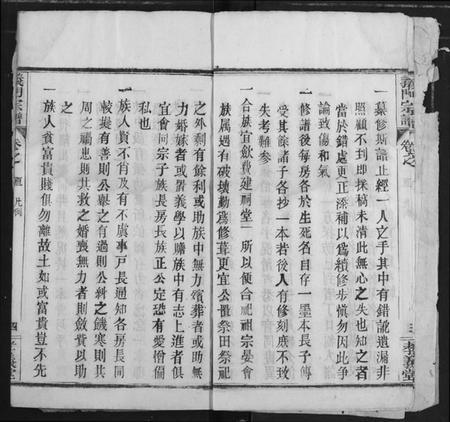 義門宗譜
卷之
三
敦義堂
一纂修斯譜止經一人之手其中有錯訛遺漏非
照顧不到即採稿未清此無心之失也知之者
當於錯處更正添補以爲續修步慎勿因此爭
論致傷和氣
一修譜後每房各於生死名目存一墨本長子傳
受其餘諸子各抄一本若後人有修刻庶不致
失考難參
一合族宜歛費建祠堂一所以便合祀祖宗晏會
族屬遇有破壞勤爲修葺更宜公置祭田祭祀
之外剩有餘利或助族中無力殯葬者或助無
力婚嫁者或置義學以贍族中有志上進者俱
宜會同宗子族長房長族正公定恐有愛憎偏
私也
一族人賢不肖及有不虞事戸長通知各房長同
較義有善則公舉之有過則公糾之饑寒則共
周之禍患則共救之婚喪無力者則歛費以助
之
一族人貧富貴賤俱勿離故土如或富貴豈不先
義門宗譜
卷之
凡例
四